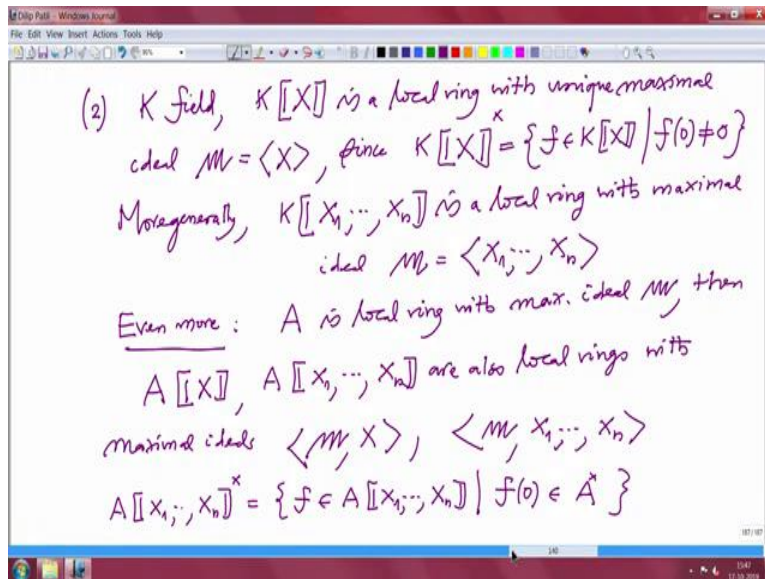 Dilip Patil - Windows Journal
File Edit View Insert Actions Tools Help
(2) K field, K⟦X⟧ is a local ring with unique maximal
ideal 𝔪 = ⟨X⟩, since K⟦X⟧^× = {f ∈ K⟦X⟧ | f(0) ≠ 0}
More generally, K⟦X₁,…,Xₙ⟧ is a local ring with maximal
ideal 𝔪 = ⟨X₁,…,Xₙ⟩
Even more : A is local ring with max. ideal 𝔪, then
A⟦X⟧, A⟦X₁,…,Xₙ⟧ are also local rings with
maximal ideals ⟨𝔪, X⟩, ⟨𝔪, X₁,…,Xₙ⟩
A⟦X₁,…,Xₙ⟧^× = {f ∈ A⟦X₁,…,Xₙ⟧ | f(0) ∈ A^×}
140
15:47